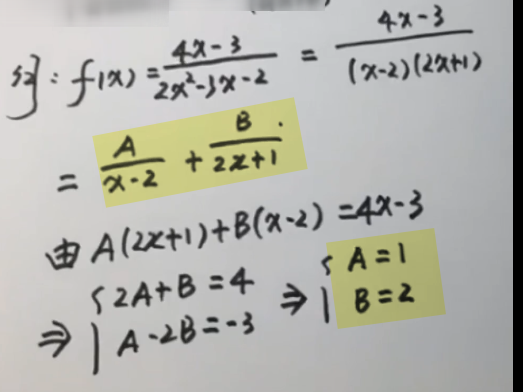 例：f(x) = (4x-3)/(2x²-3x-2) = (4x-3)/((x-2)(2x+1))
= A/(x-2) + B/(2x+1)
由 A(2x+1)+B(x-2) =4x-3
⇒ { 2A+B=4
A-2B=-3
⇒ { A=1
B=2